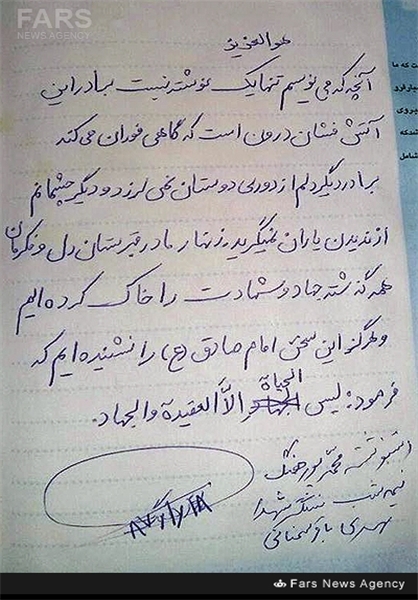 FARS
NEWS AGENCY
هوالعزیز
آنچه که می نویسم تنها یک نوشته نیست برادر این
آتش فشان درون است که گاهی فوران می کند
برادر دیگر دلم از دوری دوستان نمی لرزد و دیگر چشمانم
از ندیدن یاران نمیگرید زنهار ما در قبرستان دل و فکرمان
همه گذشته جهاد و شهادت را خاک کرده ایم
و هرگز این سخن امام صادق (ع) را نشنیده ایم که
فرمود: لیس الحیاة الّا العقیدة والجهاد.
دستنوشته محمد پورهنگ
نیمه شب سنگر شهدا
مهدی
۸۷/۱/۲۸
ت که ما
نیروی
شامل
Fars News Agency